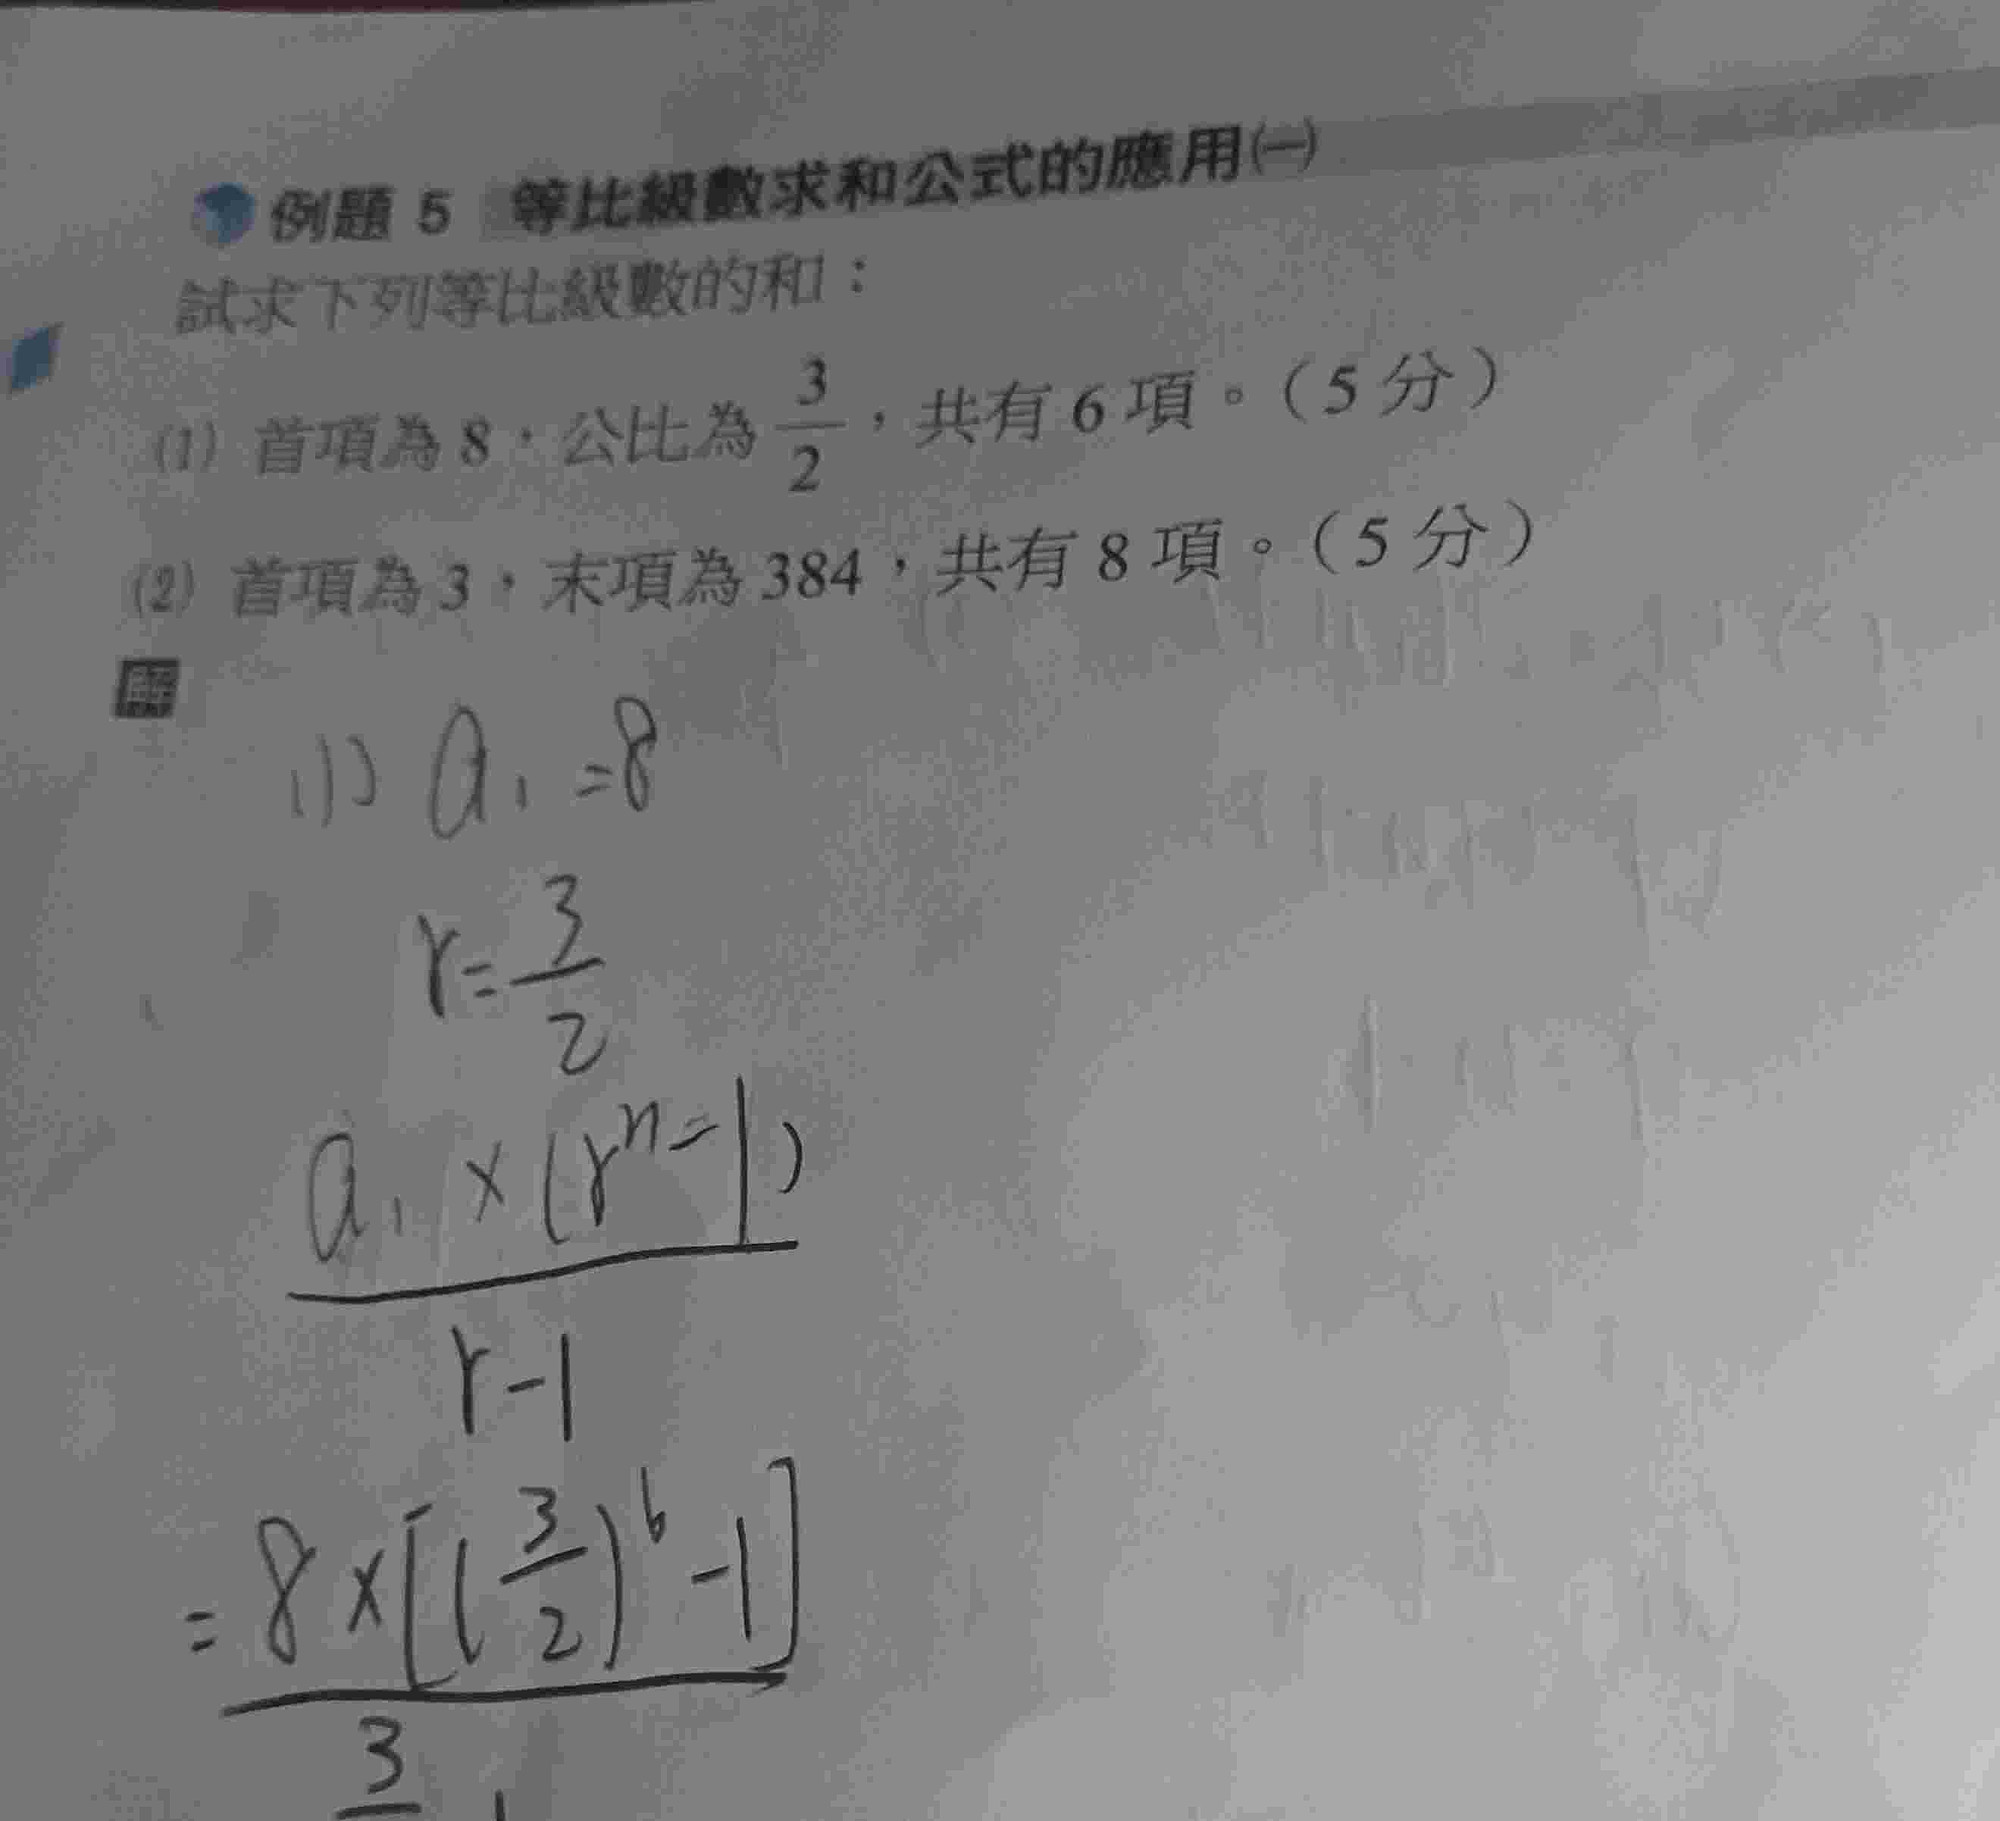 例題 5 等比級數求和公式的應用㈠
試求下列等比級數的和：
(1) 首項為 8，公比為 3/2，共有 6 項。（5 分）
(2) 首項為 3，末項為 384，共有 8 項。（5 分）
解
(1) a₁ = 8
r = 3/2
a₁ × (rⁿ - 1)
r - 1
= 8 × [(3/2)⁶ - 1]
3